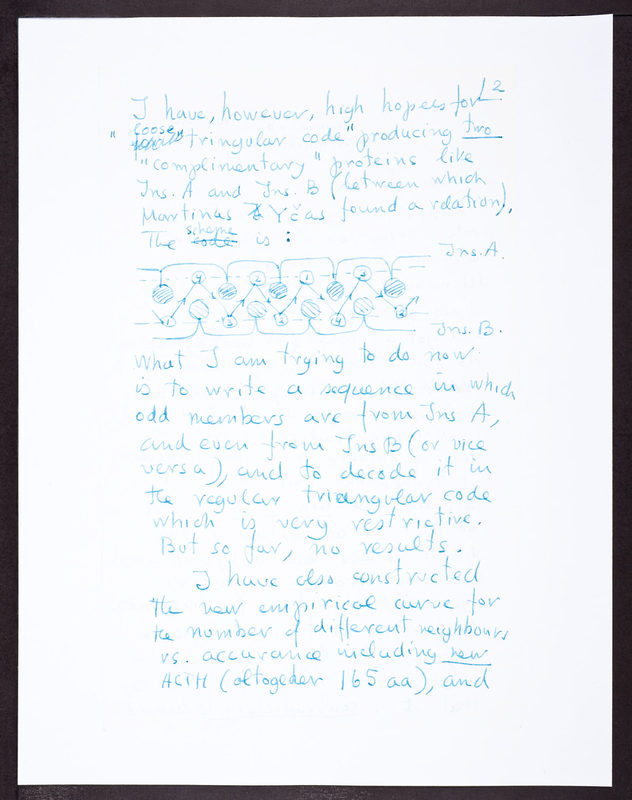 2
I have, however, high hopees for
"loose "tringular code" producing two
"complimentary" proteins like
Ins. A and Ins. B (between which
Martinas Yčas found a relation).
The scheme code is :
Ins. A.
4 2 1 3
1 3 3 4 2
Ins. B.
What I am trying to do now
is to write a sequence in which
odd members are from Ins A,
and even from Ins B (or vice
versa), and to decode it in
the regular triangular code
which is very restrictive.
But so far, no results.
I have also constructed
the new empirical curve for
the number of different neighbours
vs. accurance including new
ACTH (oltogeder 165 aa), and